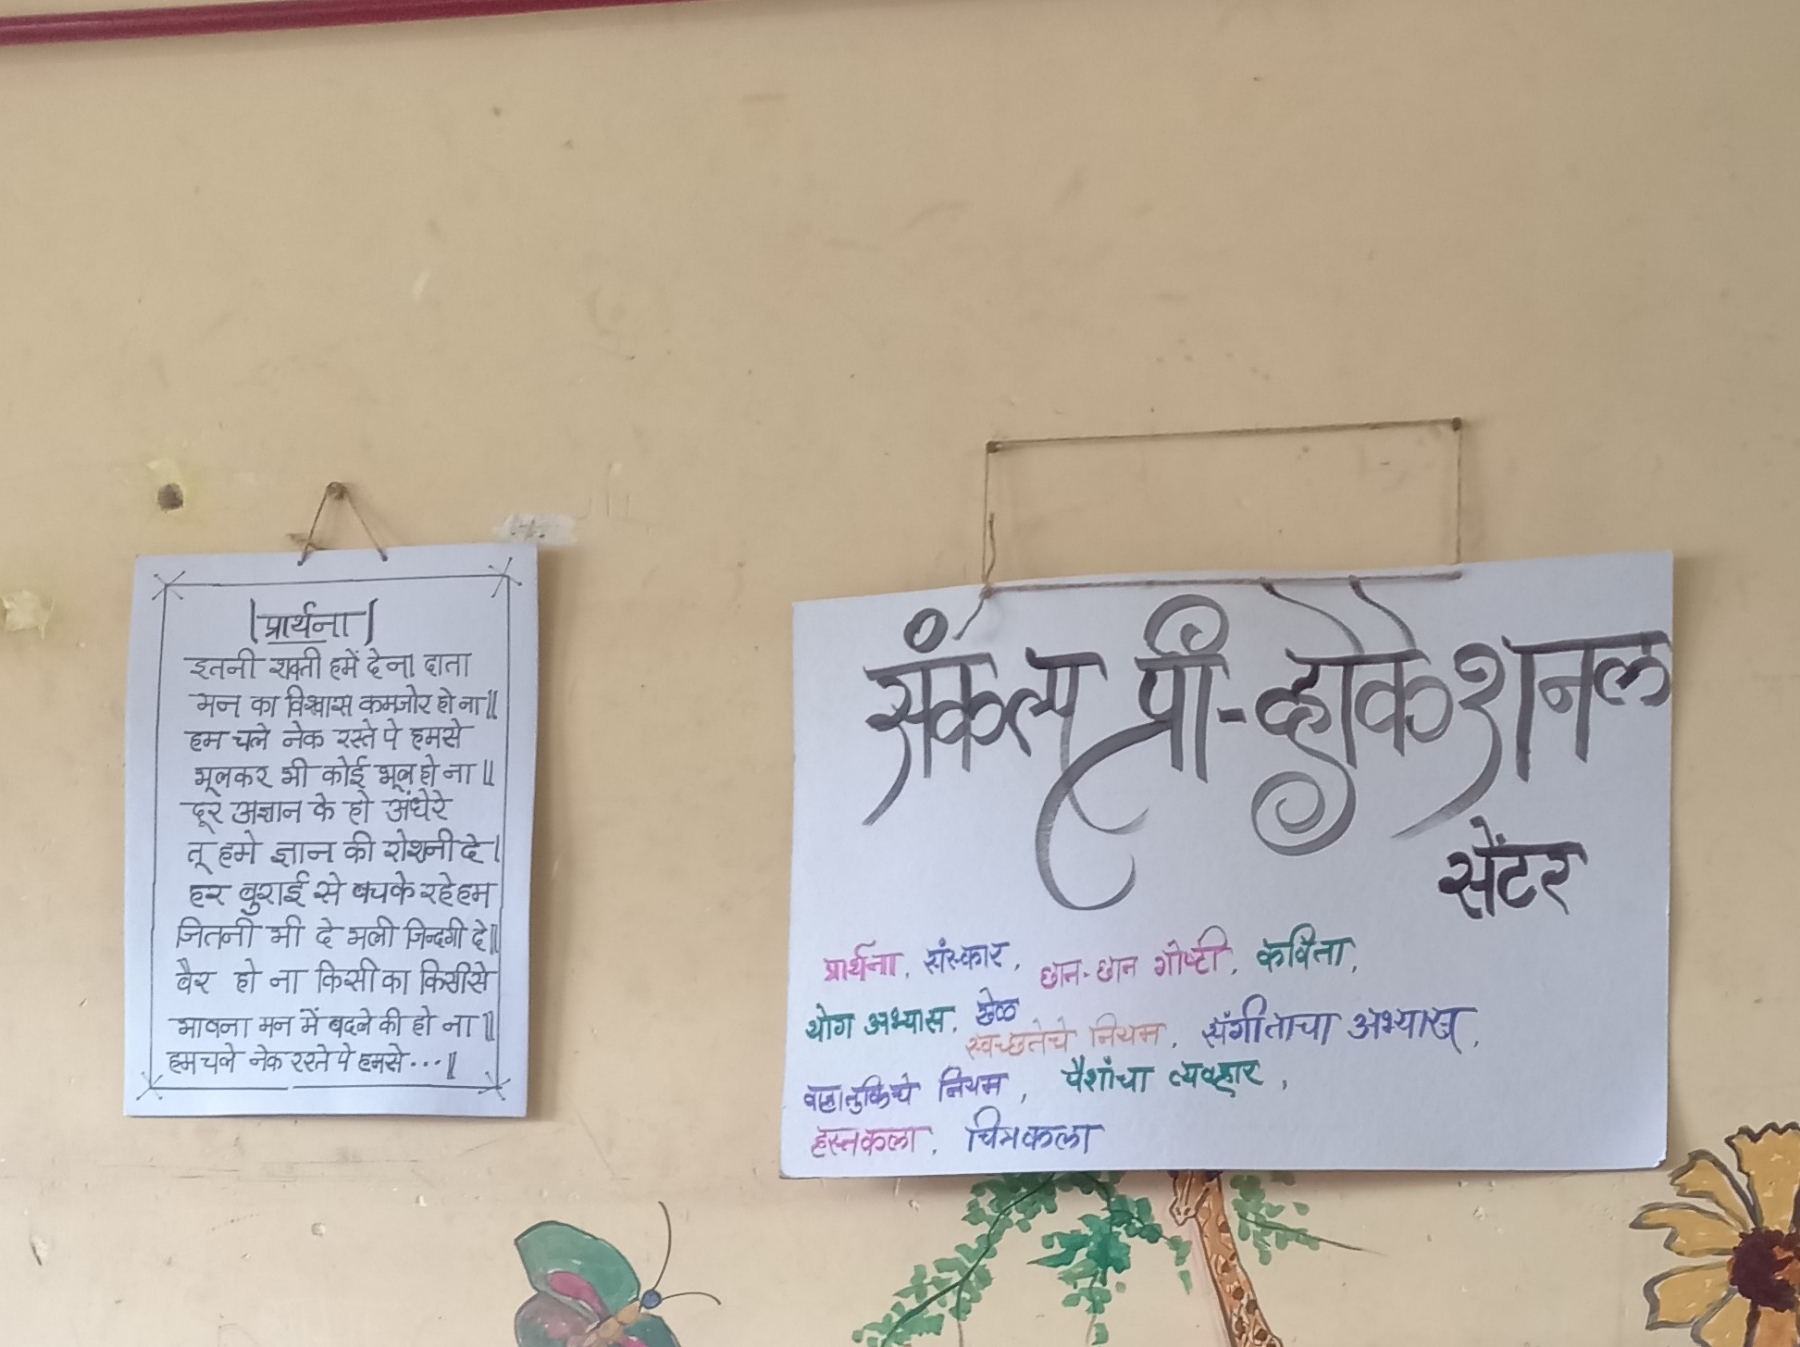 प्रार्थना
इतनी शक्ती हमें देना दाता
मन का विश्वास कमजोर हो ना॥
हम चले नेक रस्ते पे हमसे
भूलकर भी कोई भूल हो ना॥
दूर अज्ञान के हो अंधेरे
तू हमे ज्ञान की रोशनी दे।
हर बुराई से बचके रहे हम
जितनी भी दे भली जिन्दगी दे॥
वैर हो ना किसी का किसीसे
भावना मन में बदले की हो ना॥
हम चले नेक रस्ते पे हमसे...॥
संकल्प प्री-व्होकेशनल
सेंटर
प्रार्थना, संस्कार, छान-छान गोष्टी, कविता,
योग अभ्यास, खेळ
स्वच्छतेचे नियम, संगीताचा अभ्यास,
वाहतुकिचे नियम, पैशांचा व्यवहार,
हस्तकला, चित्रकला